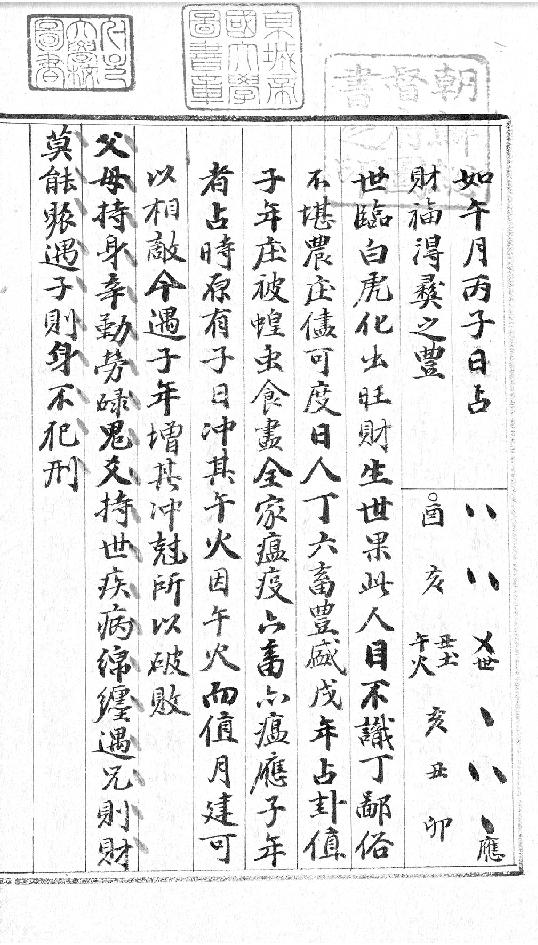 如午月丙子日占
財福得彝之豐
酉
亥
丑土
午火
世
亥
丑
卯
應
世臨白虎化出旺財生世果此人目不識丁鄙俗
不堪農庄儘可度日人丁六畜豐盛戊年占卦值
子年庄被蝗虫食盡全家瘟疫六畜亦瘟應子年
者占時原有子日冲其午火因午火而值月建可
以相敵今遇子年增其冲尅所以破敗
父母持身辛勤勞碌鬼爻持世疾病綿纏遇兄則財
莫能聚遇子則身不犯刑
京城帝
國大學
圖書章
朝
督
書
大學校
圖書